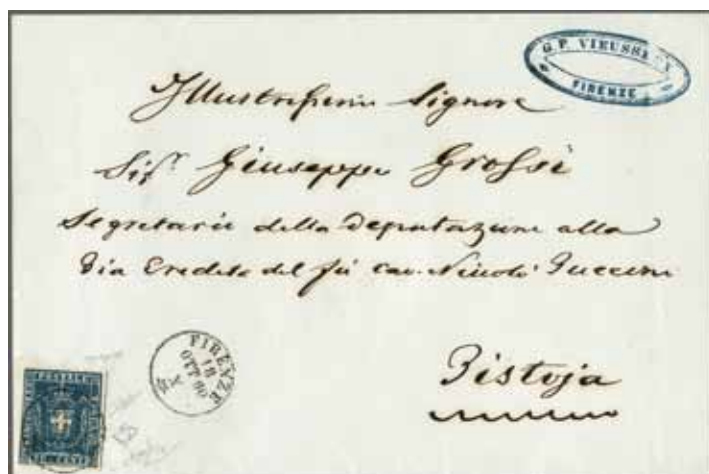 G. P. VIEUSSEUX
FIRENZE
Illustrissimo Signore
Sig.r Giuseppe Grossi
Segretario della Deputazione alla
Pia Eredità del fù Cav. Niccolò Puccini
Pistoja
FIRENZE
18
OTT 60